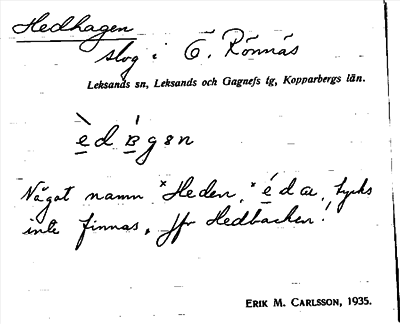 Hedhagen
slog i Ö. Rönnäs
Leksands sn, Leksands och Gagnefs tg, Kopparbergs län.
Något namn ˣHeden, ˣ éda, tycks
inte finnas, jfr Hedbacken!
ERIK M. CARLSSON, 1935.